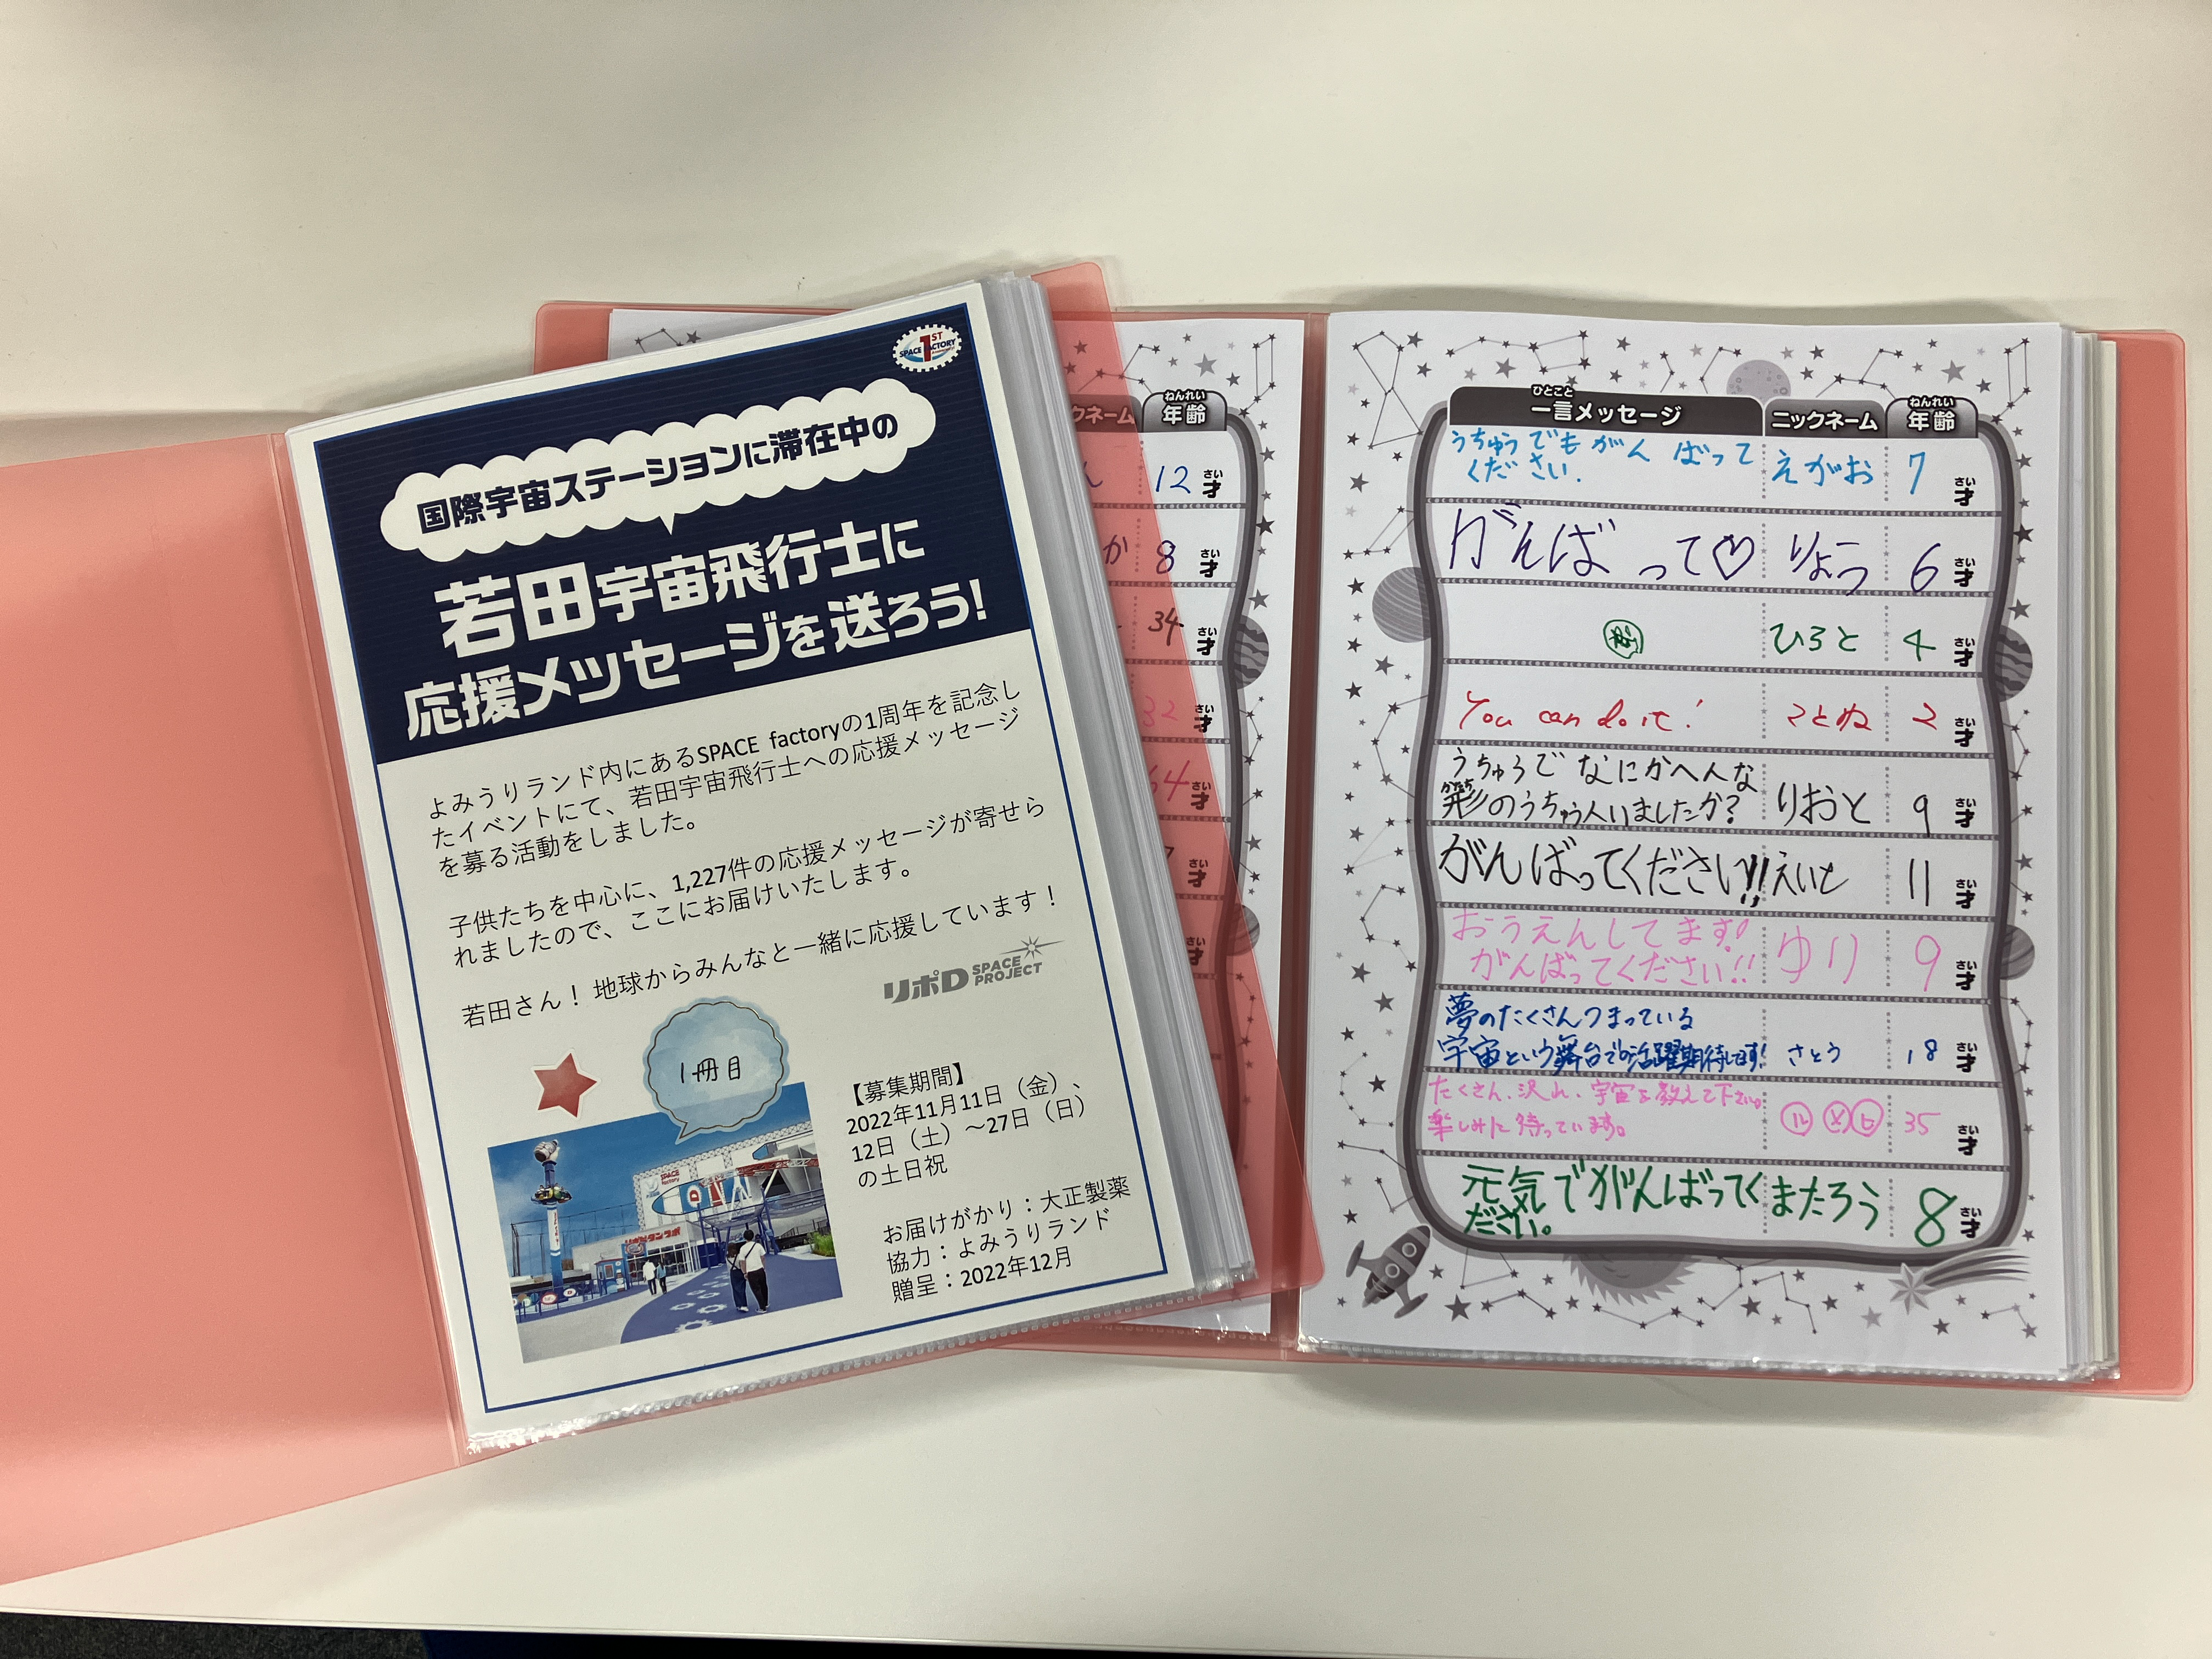 1ST
SPACE FACTORY
国際宇宙ステーションに滞在中の
若田宇宙飛行士に
応援メッセージを送ろう!
よみうりランド内にあるSPACE factoryの1周年を記念し
たイベントにて、若田宇宙飛行士への応援メッセージ
を募る活動をしました。
子供たちを中心に、1,227件の応援メッセージが寄せら
れましたので、ここにお届けいたします。
若田さん！地球からみんなと一緒に応援しています！
リポD SPACE PROJECT
1冊目
【募集期間】
2022年11月11日（金）、
12日（土）～27日（日）
の土日祝
お届けがかり：大正製薬
協力：よみうりランド
贈呈：2022年12月
SPACE factory
クネーム
ねんれい
年齢
12 さい才
か 8 さい才
34 さい才
32 さい才
64 さい才
さい才
さい才
ひとこと
一言メッセージ ニックネーム
ねんれい
年齢
うちゅうでもがんばって
ください. えがお 7 さい才
がんばって♡ りょう 6 さい才
ひろと 4 さい才
You can do it! ことね 2 さい才
うちゅうでなにかへんな
かたち
形のうちゅう人いましたか? りおと 9 さい才
がんばってください!! えいと 11 さい才
おうえんしてます!
がんばってください!! ゆり 9 さい才
夢のたくさんつまっている
宇宙という舞台での活躍期待してます! さとう 18 さい才
たくさん、沢山、宇宙を教えて下さい。
楽しみに待っています。 35 さい才
元気でがんばってく
ださい。 またろう 8 さい才